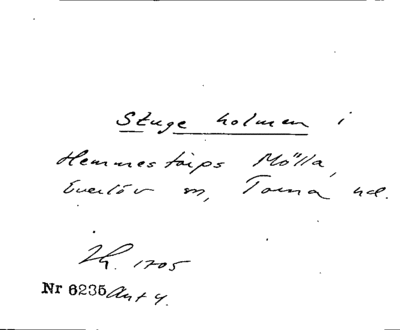 Stuge holmen i
Hemmestorps Mölla,
Everlöv sn, Torna hd.
Lh. 1705
Nr 6235 Ant 4.